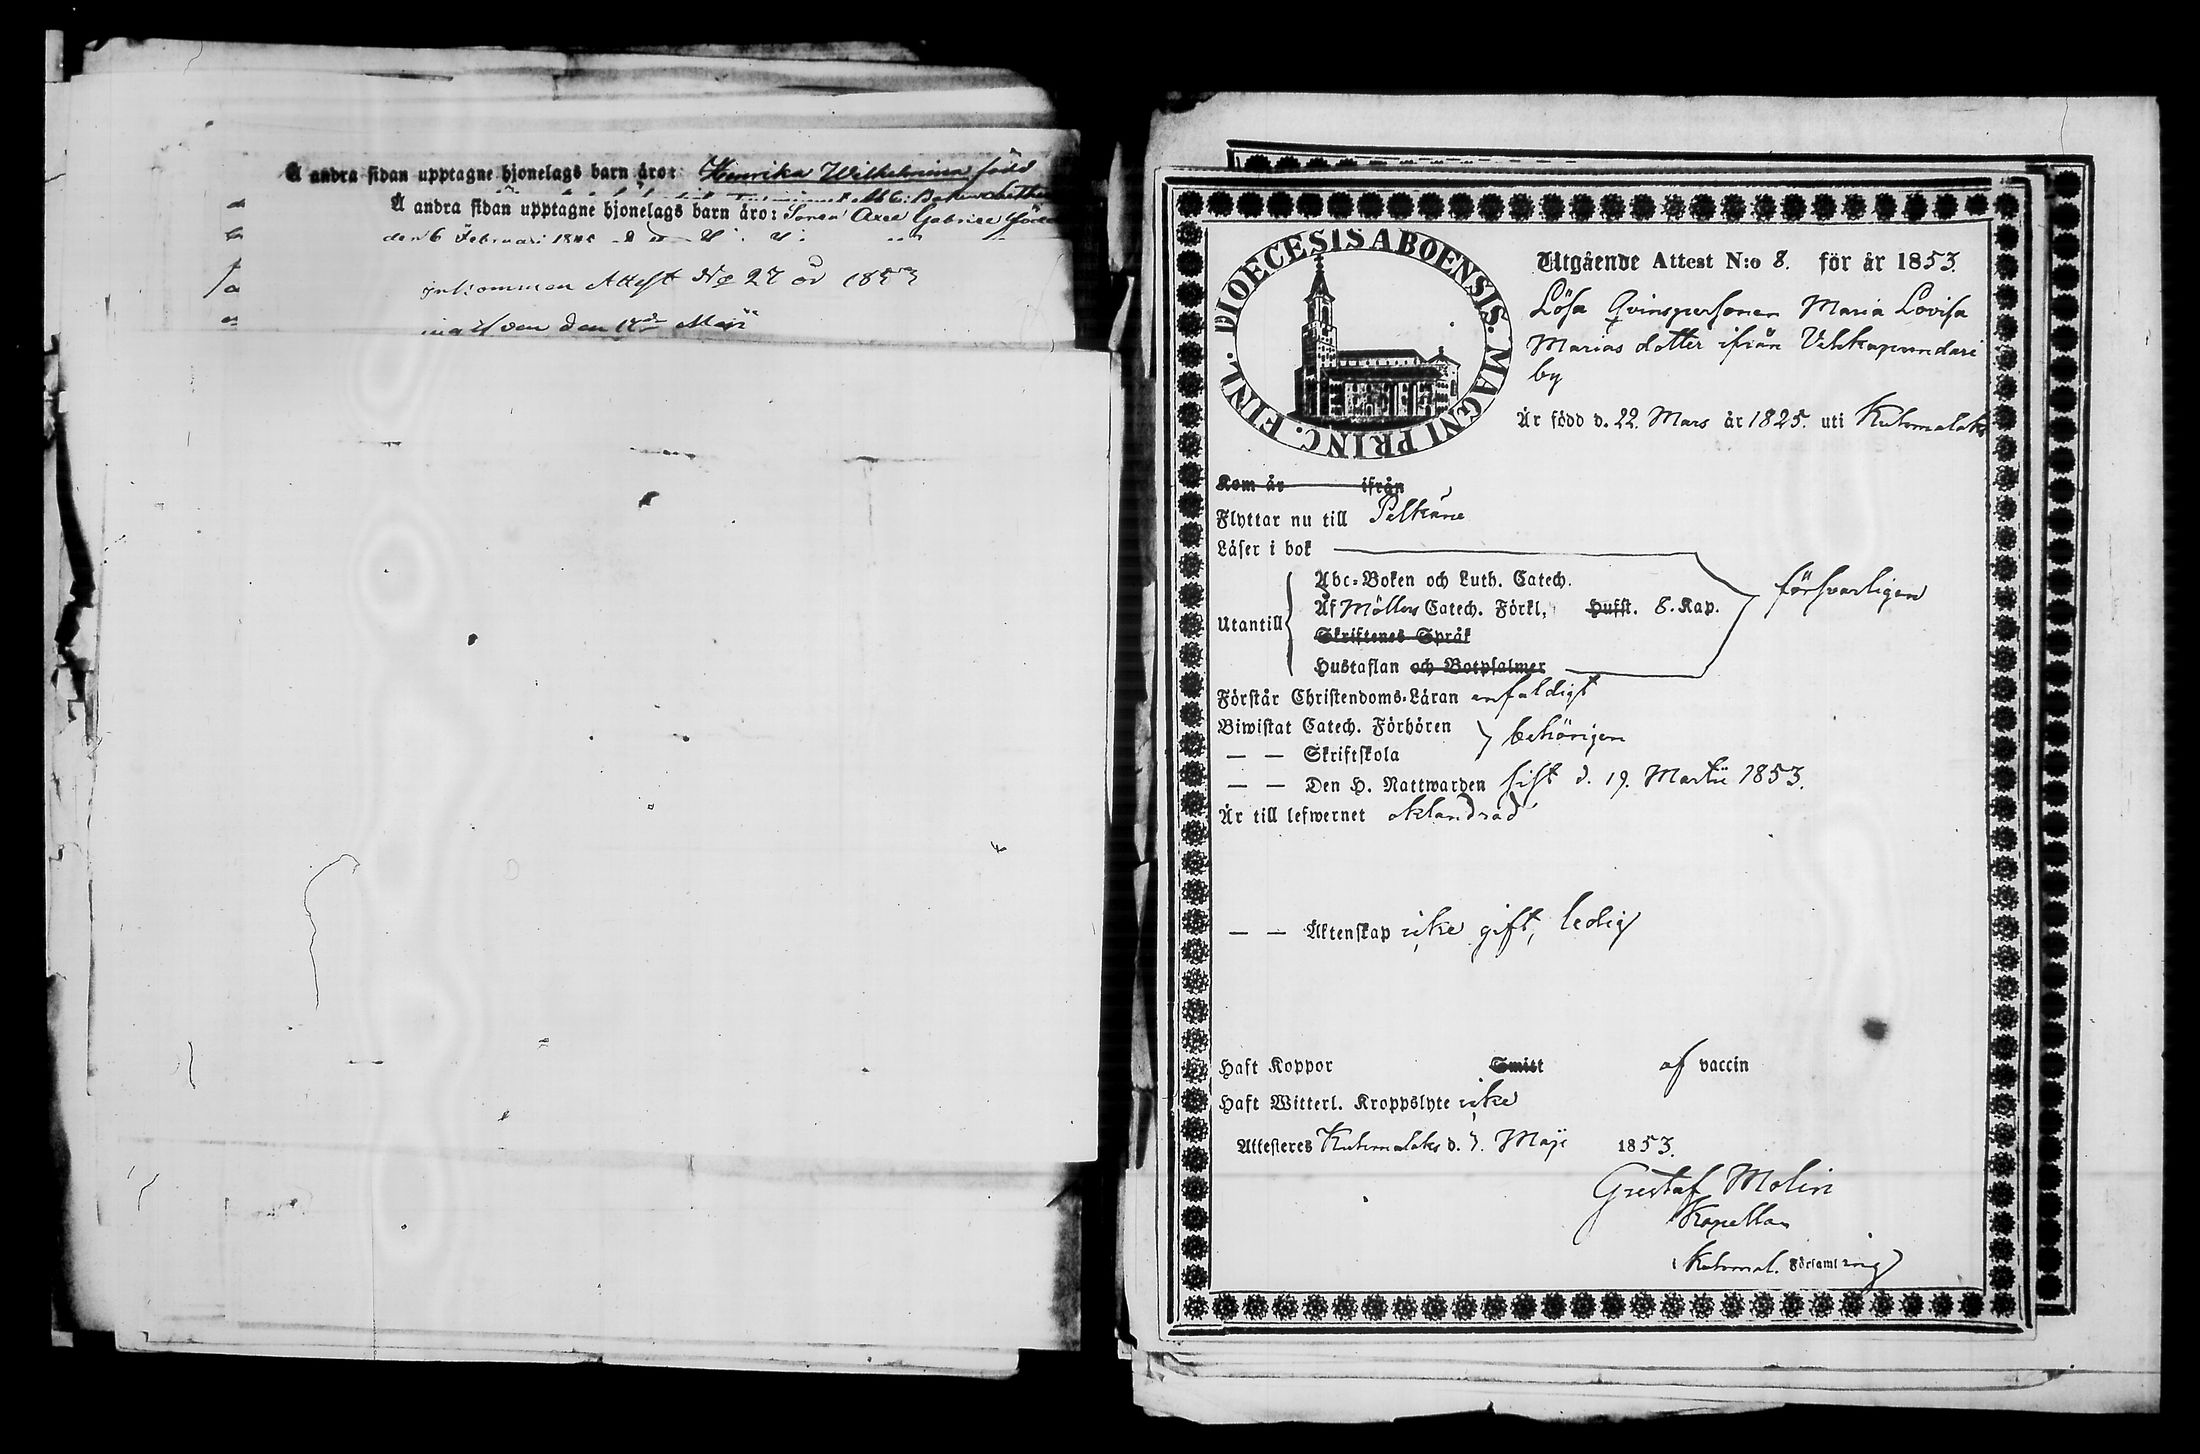 Å andra sidan upptagne hjonelags barn äro: Henrika Wilhelmina född
Å andra sidan upptagne hjonelags barn äro: Sonen Axel Gabriel född
den 6 Februari
Inkommen Attest No 27 år 1853
den 12 Maji
DIOECESIS ABOENSIS. MAGNI PRINC. FINL.
Utgående Attest N:o 8. för år 1853.
Lösa Qvinspersonen Maria Lovisa
Marias dotter ifrån Vehkapundari
by
Är född d. 22. Mars år 1825. uti Kuhmalaks
Kom år ifrån
Flyttar nu till Pelkäne
Läser i bok
Abc-Boken och Luth. Catech.
Utantill
Af Möllers Catech. Förkl, Hufst. 8. Kap.
försvarligen
Skriftenes Språk
Hustaflan och Botpsalmer
Förstår Christendoms-Läran enfaldigt
Biwistat Catech. Förhören
behörigen
— — Skriftskola
— — Den H. Nattwarden sist d. 19. Martii 1853.
Är till lefwernet oklandrad
— — Äktenskap icke gift, ledig
Haft Koppor Smitt af vaccin
Haft Witterl. Kroppslyte icke
Attesteres Kuhmalaks d. 7. Maji 1853.
Gustaf Molin
Kapellan
i Kuhmal. Församling